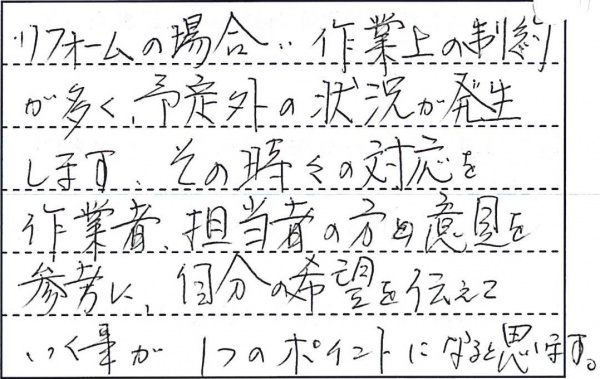 リフォームの場合、作業上の制約
が多く、予定外の状況が発生
します、その時々の対応を
作業者、担当者の方の意見を
参考に、自分の希望を伝えて
いく事が1つのポイントになると思います。